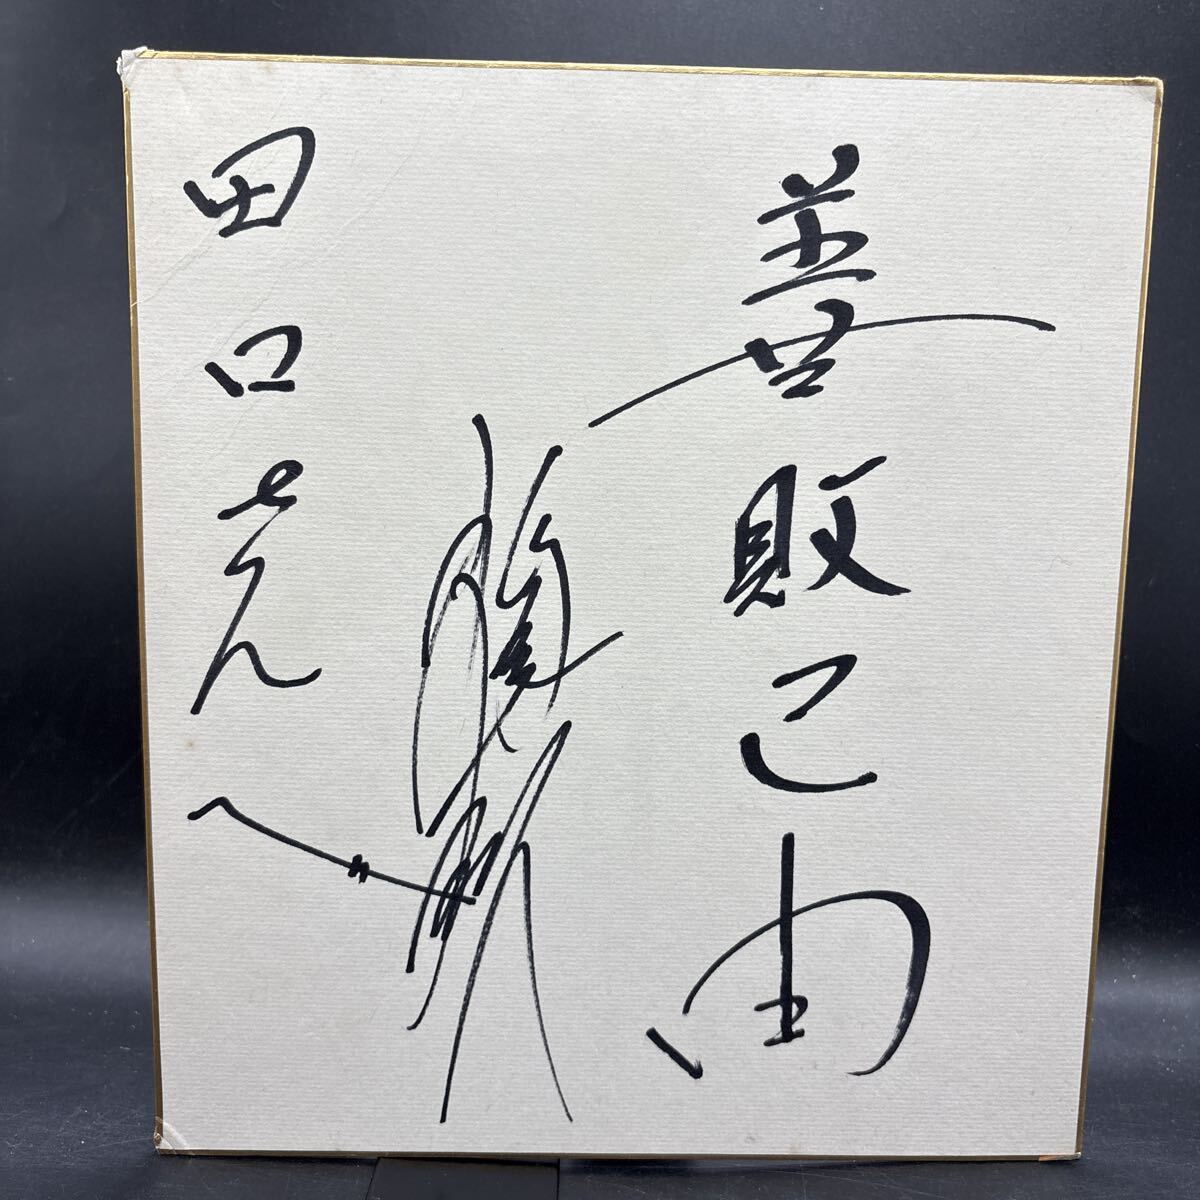 善敗己由
田口さんへ